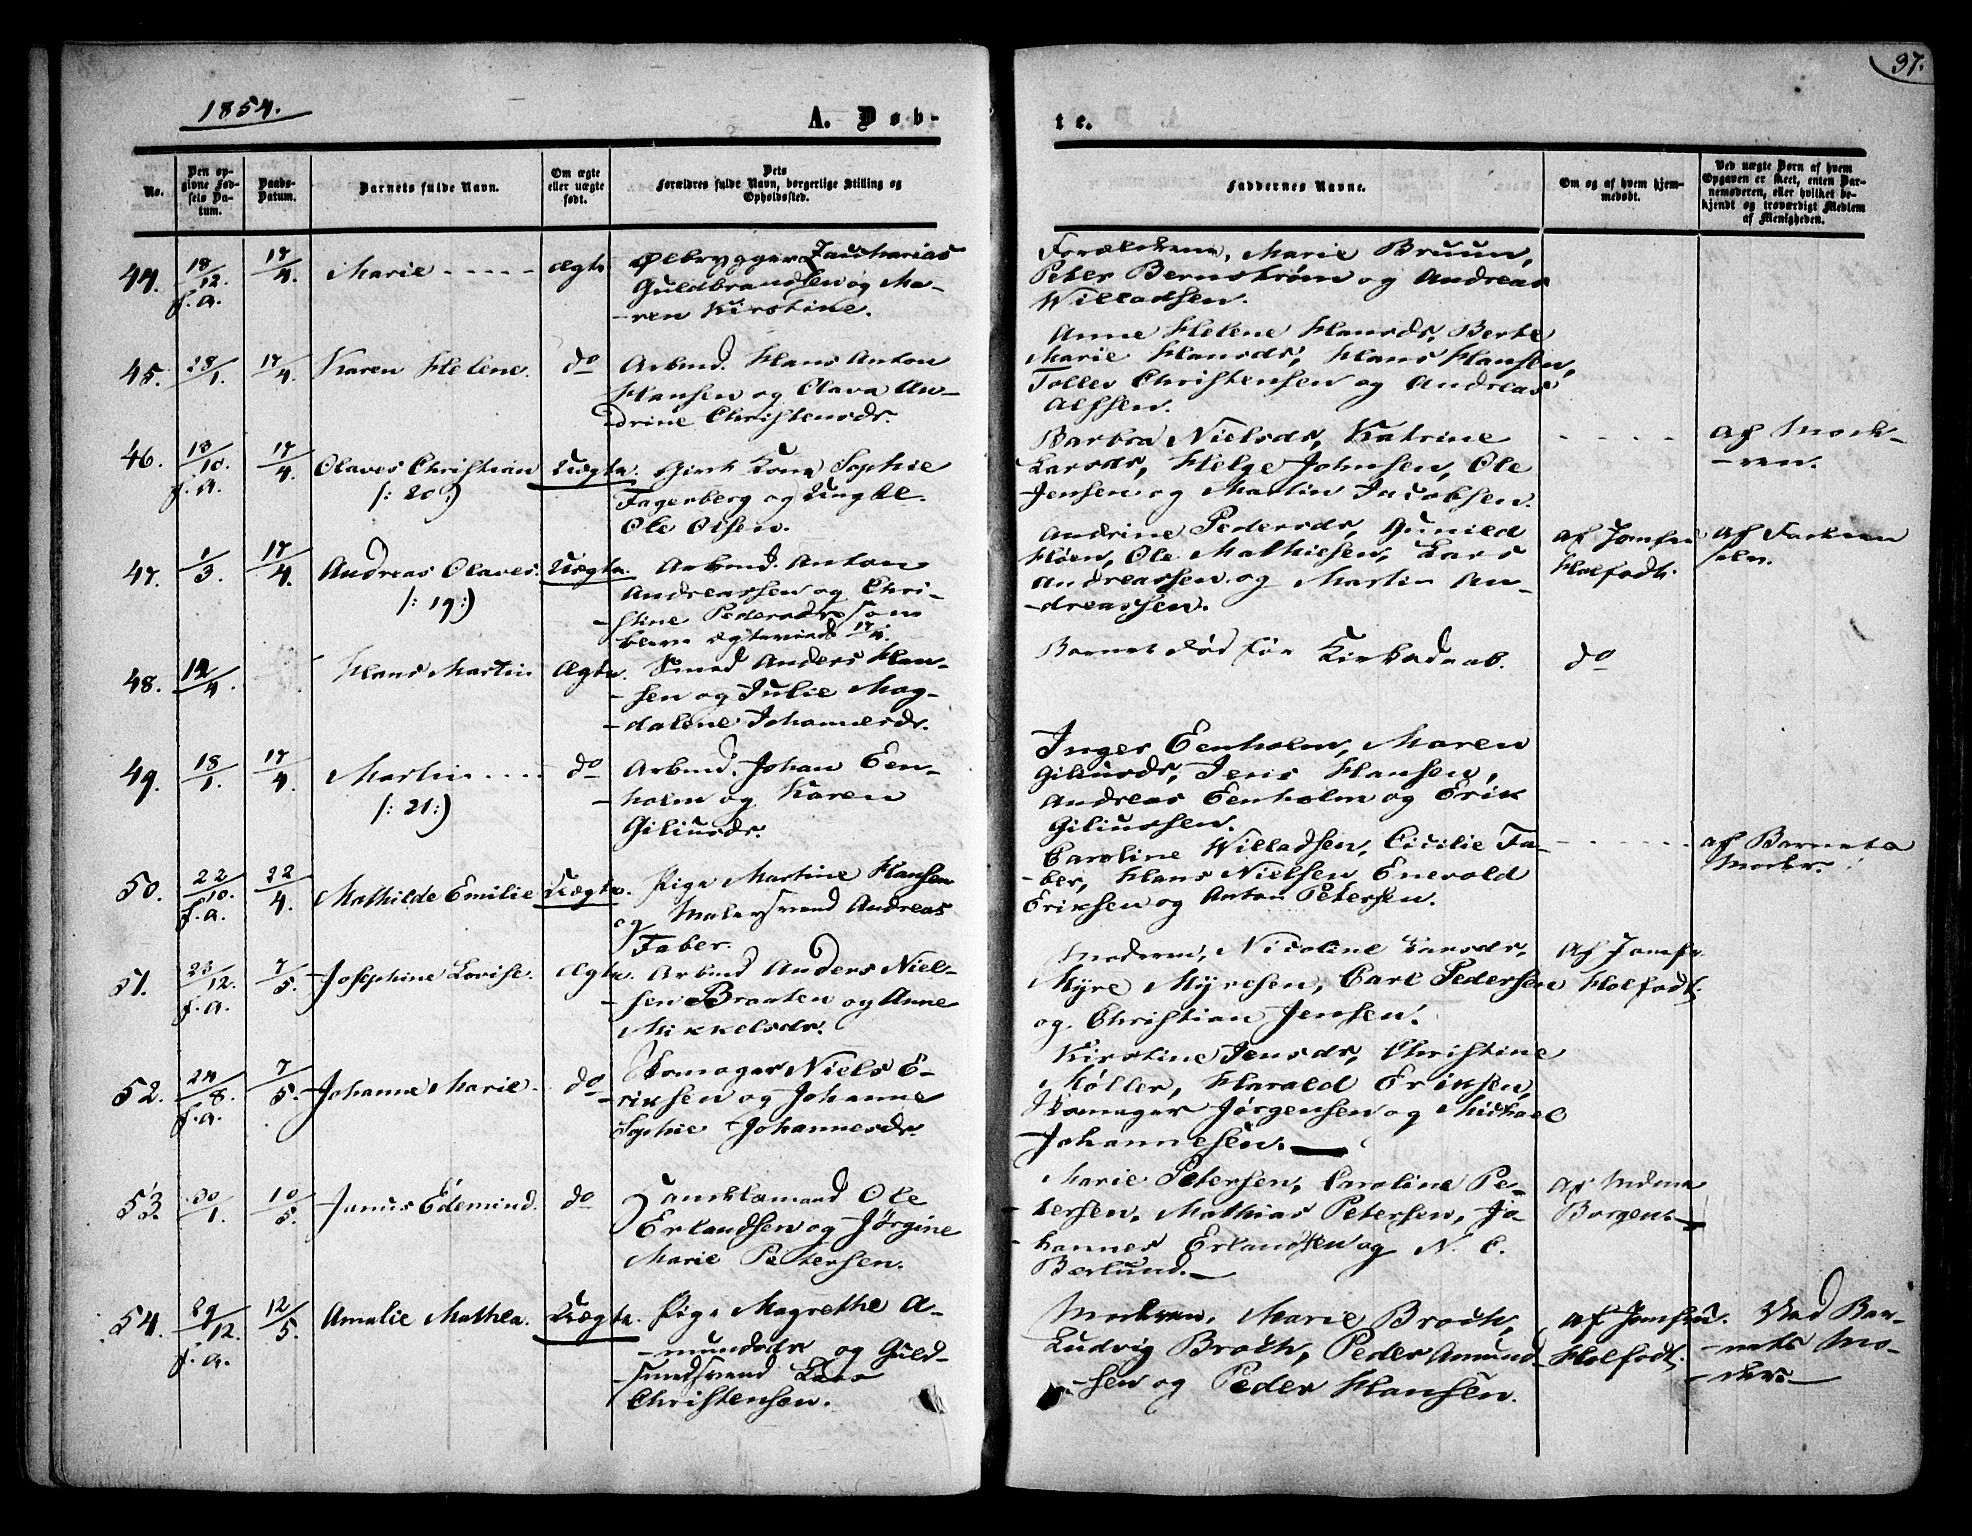 1854.
A. Døb-
te.
37.
No.
Den op-
givne Fød-
sels Da-
tum.
Daabs-
Datum.
Barnets fulde Navn.
Om ægte
eller uægte
født.
Dets
Forældres fulde Navn, borgerlige Stilling og
Opholdssted.
Faddernes Navne.
Om og af hvem hjem-
medøbt.
Ved uægte Børn af hvem
Opgaven er skeet, enten Bar-
nemoderen, eller hvilket be-
kjendt og troværdigt Medlem
af Menigheden.
44. 18/12. f.a. 17/4. Marie ægte
Ølbrygger Zacharias
Guldbrandsen og Ma-
ren Kirstine.
Forældrene, Marie Bruun,
Peter Bernstrøm og Andreas
Willadsen.
45. 28/1. 17/4. Karen Helene. do
Arbmd. Hans Anton
Hansen og Olava An-
drine Christensdr.
Anne Helene Hansdr, Berte
Marie Hansdr, Hans Hansen,
Tolles Christensen og Andreas
Alfsen.
46. 13/10. f.a. 17/4. Olaves Christian Uægte
(: 20 :)
Kone Sophie
Fagerberg og Ungkl.
Ole Olsen.
Barbra Nielsdr, Katrine
Larsdr, Helge Johnsen, Ole
Jensen og Martin Jacobsen.
af Mode-
ren.
47. 1/3. 17/4. Andreas Olaves. Uægte.
(: 19 :)
Arbmd. Anton
Andreassen og Chri-
stine Pedersdr som
blev ægteviede 17/4.
Andrine Pedersdr, Gunild
Høen, Ole Mathiesen, Lars
Andreassen og Martin An-
dreassen.
af Jomfru
Holfodt.
af Foræl-
48. 12/4. Hans Martin Ægte.
Smed Anders Han-
sen og Julie Mag-
dalene Johannesdr.
Barnet død før Kirkedaab. do
49. 18/1. 17/4. Martin do
(: 21 :)
Arbmd. Johan Een-
holm og Karen
Giliusdr.
Inger Eenholm, Maren
Giliusdr, Jens Hansen,
Andreas Eenholm og Erik
Giliussen.
50. 22/10. f.a. 22/4. Mathilde Emilie Uægte.
Pige Martine Hansen
og Malersvend Andreas
Faber.
Caroline Willadsen, Cicilie Fa-
ber, Hans Nielsen Enevold
Eriksen og Anton Petersen.
af Barnets
Moder.
51. 23/12. f.a. 7/5. Josephine Lovise. ægte.
Arbmd Anders Niel-
sen Braaten og Anne
Mikkelsdr.
Moderen, Nicoline Larsdr,
Myre Myresen, Carl Pedersen
og Christian Jensen.
af Jomfr.
Holfodt.
52. 24/8. f.a. 7/5. Johanne Marie. do
Skomager Niels E-
riksen og Johanne
Sophie Johannesdr.
Kirstine Jensdr, Christine
Køller, Harald Eriksen,
Skomager Jørgensen og Michael
Johannesen.
53. 30/1. 10/5. Junus Edemund. do
Ole
Erlandsen og Jørgine
Marie Petersen.
Marie Petersen, Caroline Pe-
tersen, Mathias Petersen, Jo-
hannes Erlandsen og N. C.
Berlund.
af Madme
Borgen.
54. 29/12. f.a. 12/5. Amalie Mathea. Uægte.
Pige Magrethe A-
mundsdr og Guld-
smedsvend Lars
Christensen.
Moderen, Marie Broch,
Ludvig Broch, Peder Amund-
sen og Peder Hansen.
af Jomfru.
Holfodt.
Ved Bar-
nets Mo-
der.